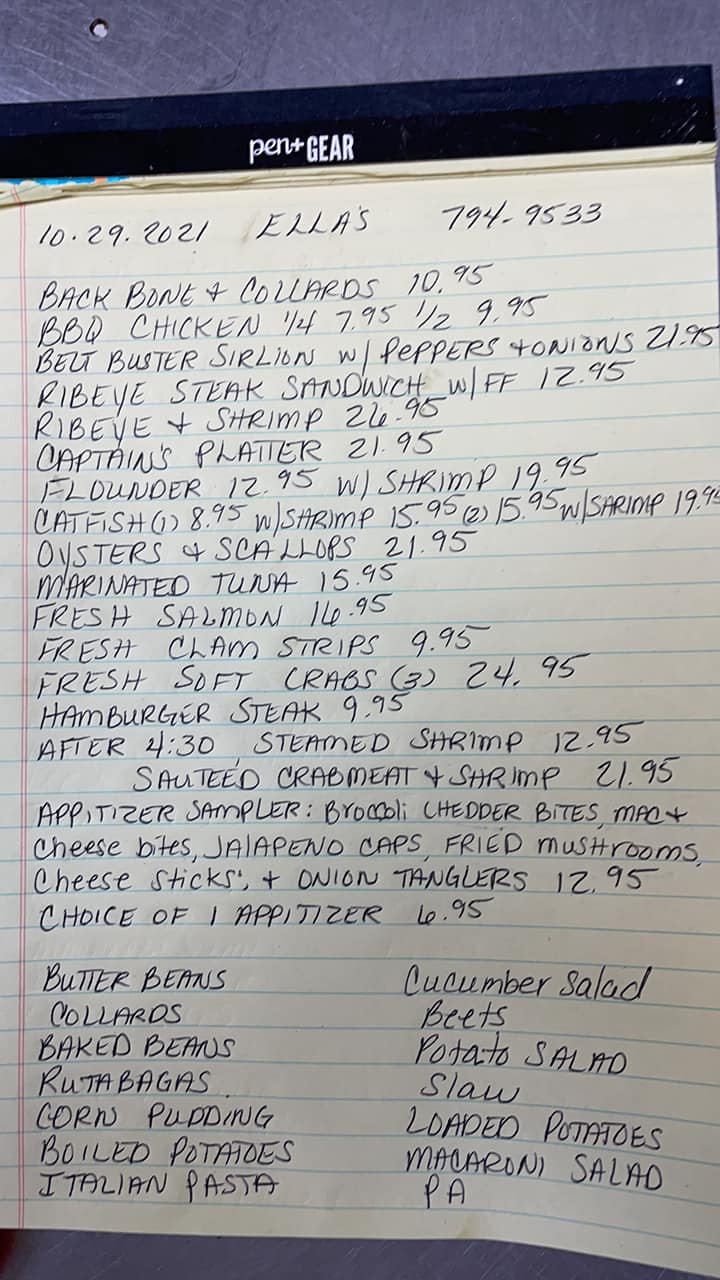 pen+GEAR
10.29.2021 ELLA'S 794-9533
BACK BONE & COLLARDS 10.95
BBQ CHICKEN 1/4 7.95 1/2 9.95
BELT BUSTER SIRLION W/ PEPPERS + ONIONS 21.95
RIBEYE STEAK SANDWICH W/ FF 12.95
RIBEYE + SHRIMP 26.95
CAPTAIN'S PLATTER 21.95
FLOUNDER 12.95 W/ SHRIMP 19.95
CATFISH (1) 8.95 W/SHRIMP 15.95 (2) 15.95 W/SHRIMP 19.95
OYSTERS & SCALLOPS 21.95
MARINATED TUNA 15.95
FRESH SALMON 16.95
FRESH CLAM STRIPS 9.95
FRESH SOFT CRABS (3) 24.95
HAMBURGER STEAK 9.95
AFTER 4:30 STEAMED SHRIMP 12.95
SAUTEED CRABMEAT & SHRIMP 21.95
APPITIZER SAMPLER: Broccoli CHEDDER BITES, MAC +
Cheese bites, JALAPENO CAPS, FRIED MUSHROOMS,
Cheese Sticks, + ONION TANGLERS 12.95
CHOICE OF 1 APPITIZER 6.95
BUTTER BEANS Cucumber Salad
COLLARDS Beets
BAKED BEANS Potato SALAD
RUTABAGAS Slaw
CORN PUDDING LOADED POTATOES
BOILED POTATOES MACARONI SALAD
ITALIAN PASTA PA